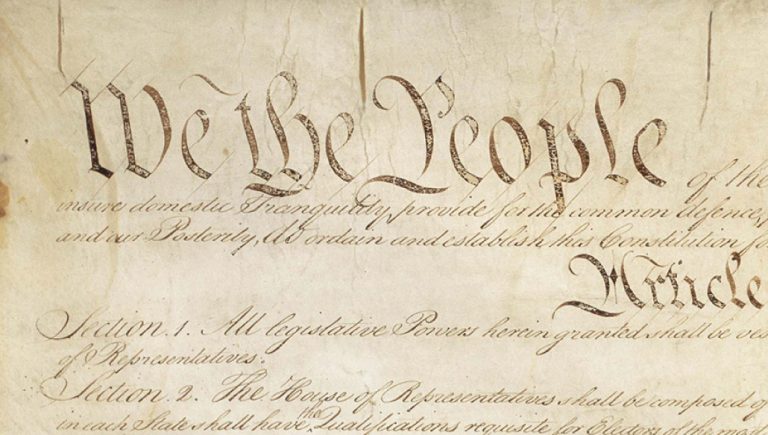 We the People of the
insure domestic Tranquility, provide for the common defence,
and our Posterity, do ordain and establish this Constitution fo
Article
Section. 1. All legislative Powers herein granted shall be ves
of Representatives.
Section. 2. The House of Representatives shall be composed of
the
in each State shall have Qualifications requisite for Electors of the most